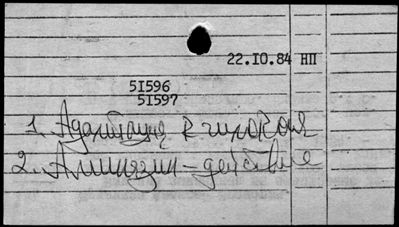 22.IO.84 НП
5I596
5I597
1. Адаптация к гипоксия
2. Аминазин - действие